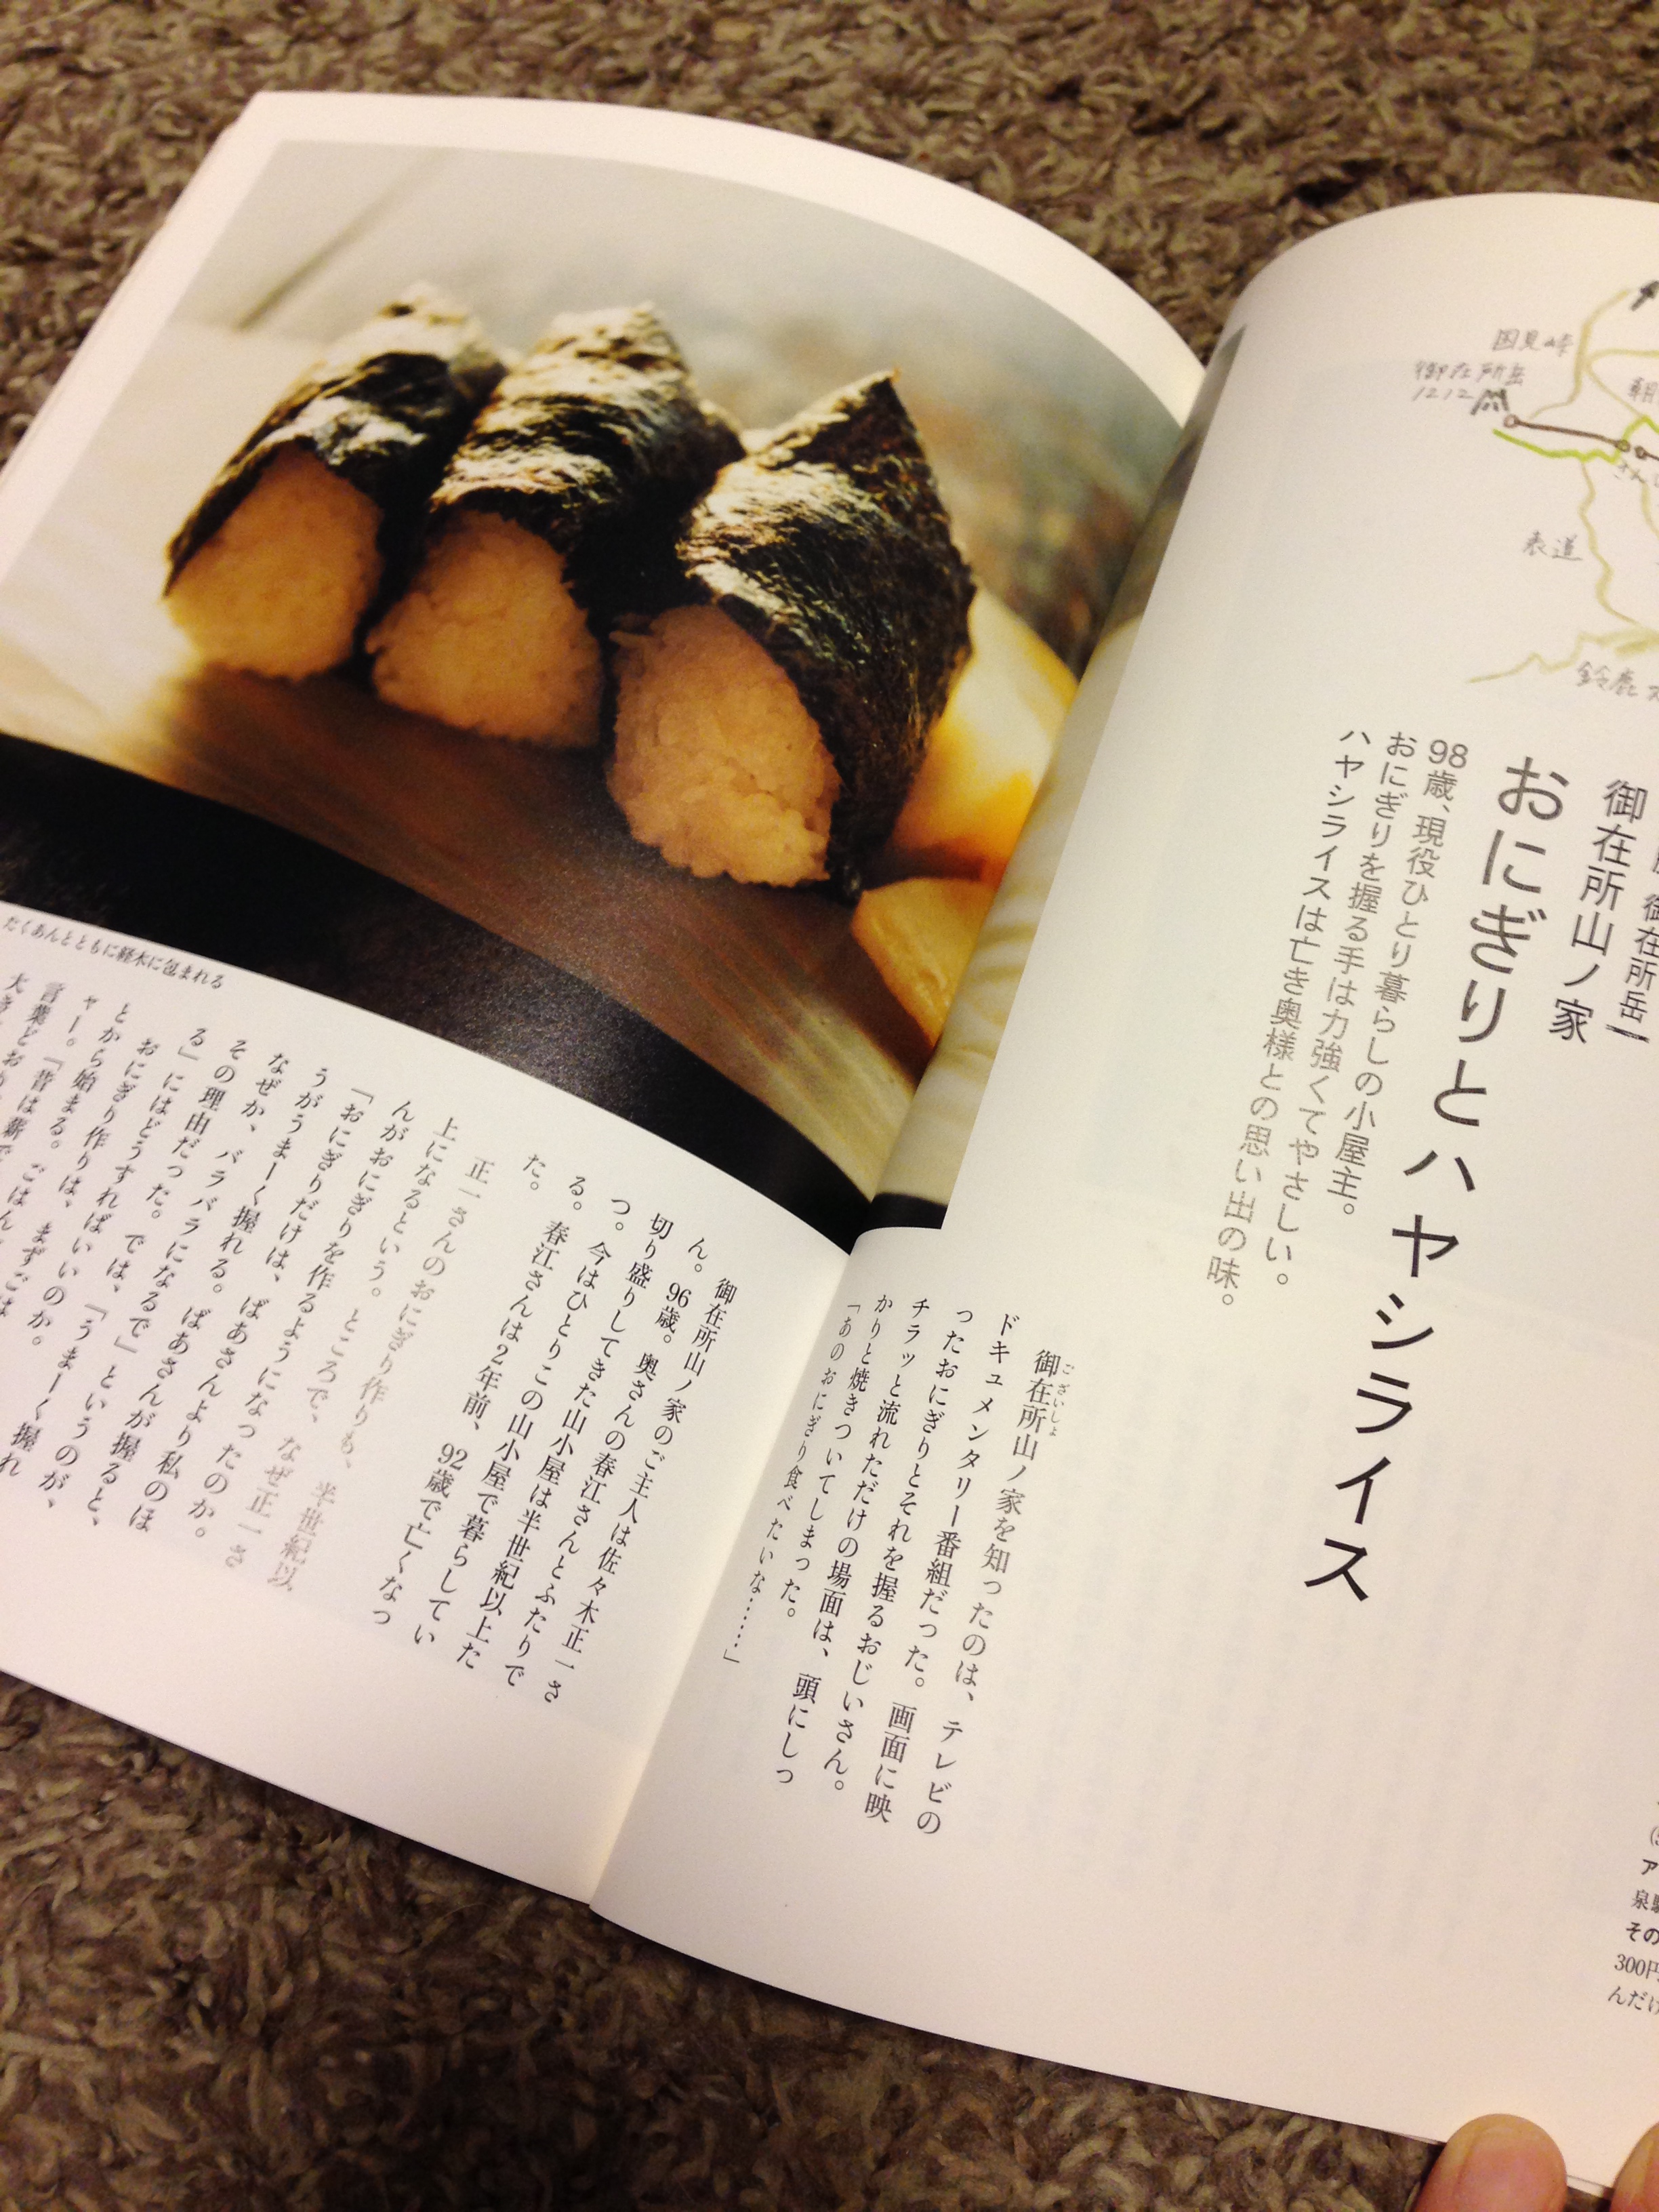 国見峠
御在所岳
1212m
表道
鈴鹿
御在所岳
御在所山ノ家
おにぎりとハヤシライス
98歳、現役ひとり暮らしの小屋主。
おにぎりを握る手は力強くてやさしい。
ハヤシライスは亡き奥様との思い出の味。
御在所山ノ家を知ったのは、テレビの
ございしょ
ドキュメンタリー番組だった。画面に映
ったおにぎりとそれを握るおじいさん。
チラッと流れただけの場面は、頭にしっ
かりと焼きついてしまった。
「あのおにぎり食べたいな……」
300円
んだけ
その
御在所山ノ家のご主人は佐々木正一さ
ん。96歳。奥さんの春江さんとふたりで
切り盛りしてきた山小屋は半世紀以上た
つ。今はひとりこの山小屋で暮らしてい
る。春江さんは2年前、92歳で亡くなっ
た。
正一さんのおにぎり作りも、半世紀以
上になるという。ところで、なぜ正一さ
んがおにぎりを作るようになったのか。
「おにぎりだけは、ばあさんより私のほ
うがうまーく握れる。ばあさんが握ると、
なぜか、バラバラになるで」というのが、
その理由だった。では、「うまーく握れ
る」にはどうすればいいのか。
おにぎり作りは、まずごは
とから始まる。
たくあんとともに経木に包まれる